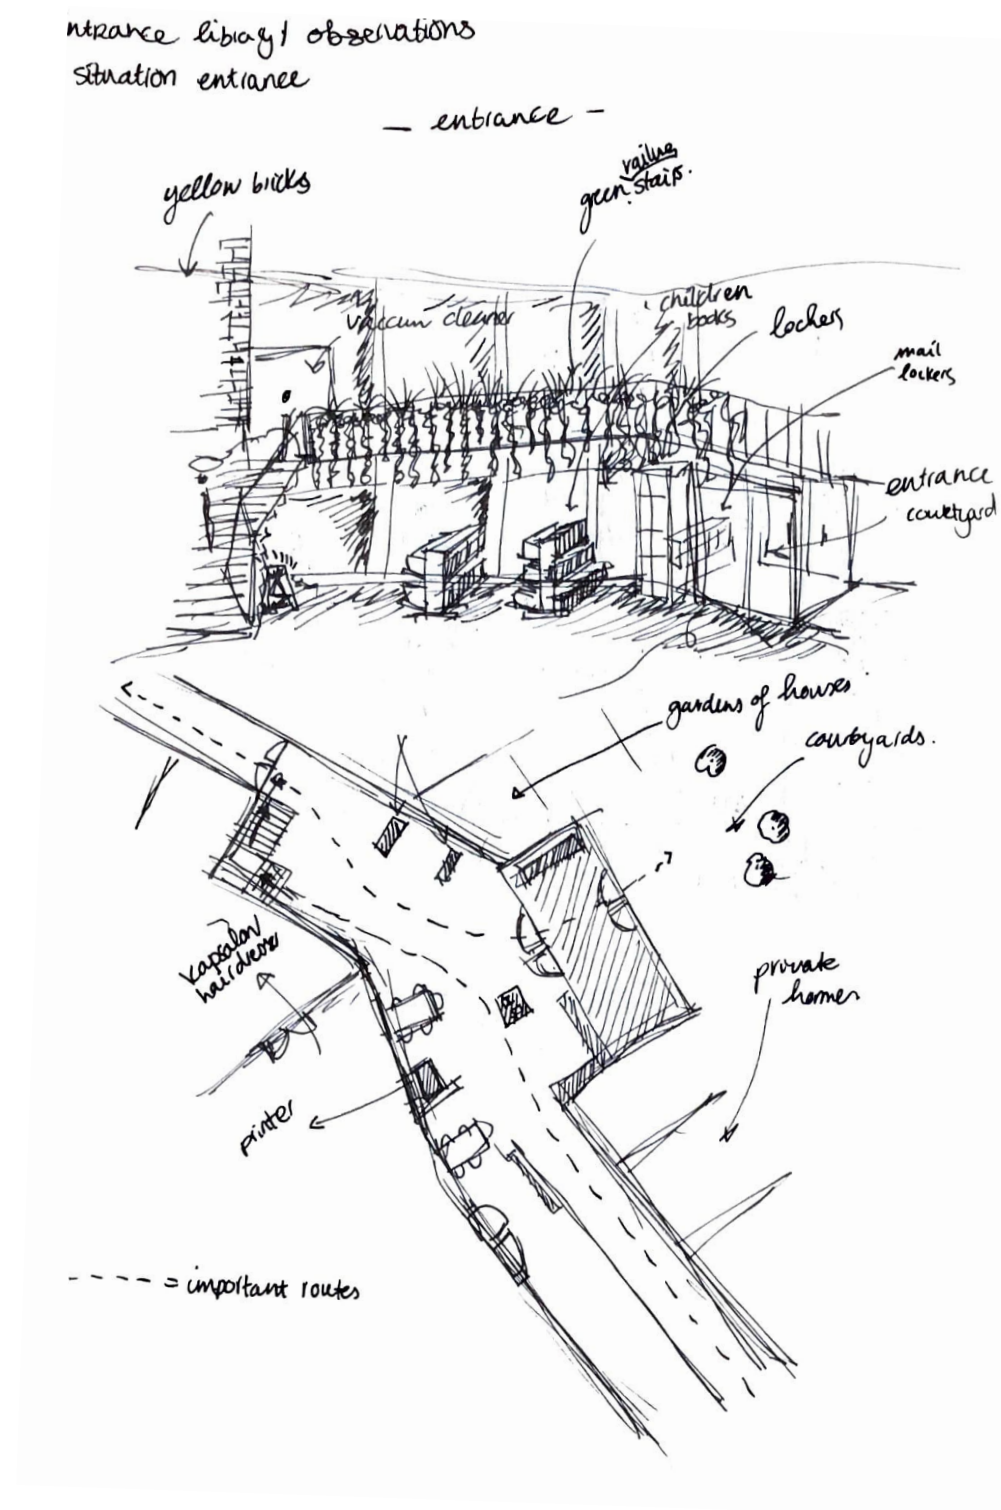 ntrance library / observations
situation entrance
– entrance –
yellow bricks
railing
green stairs.
vaccum cleaner
children
books
lockers
mail
lockers
entrance
courtyard
gardens of houses
courtyards.
kapsalon/
hairdresser
private
homes
printer
---- = important routes